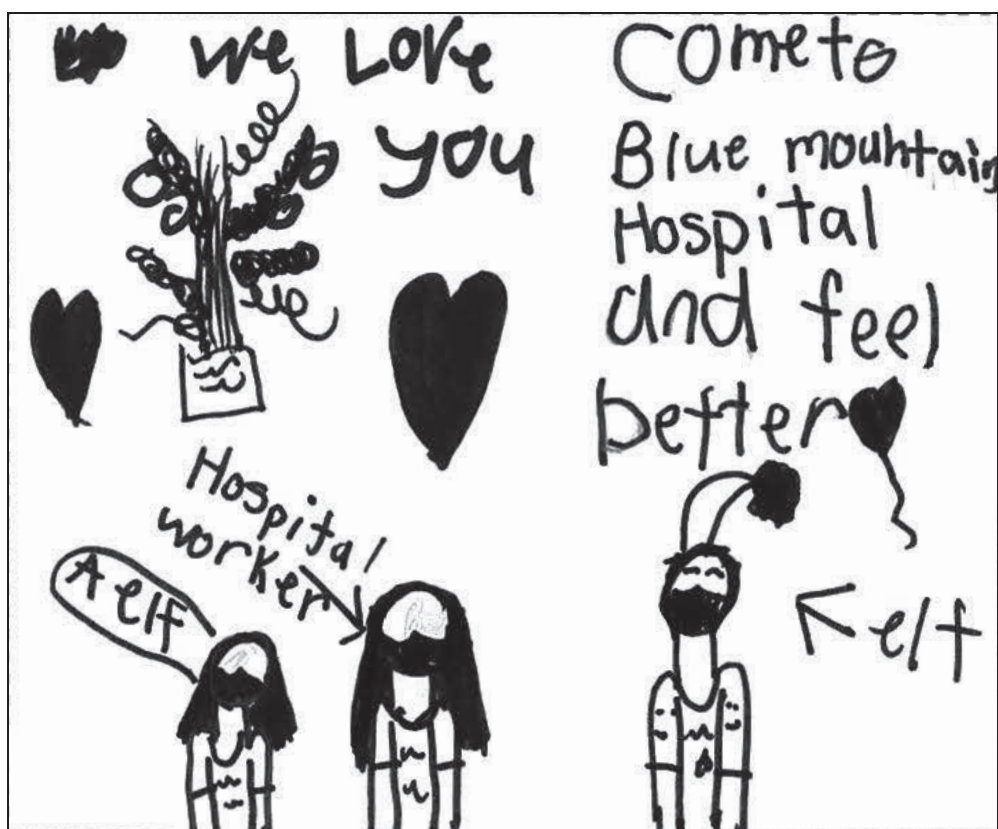 We Love
you
Come to
Blue mountain
Hospital
and feel
better
Hospital
worker
A elf
elf